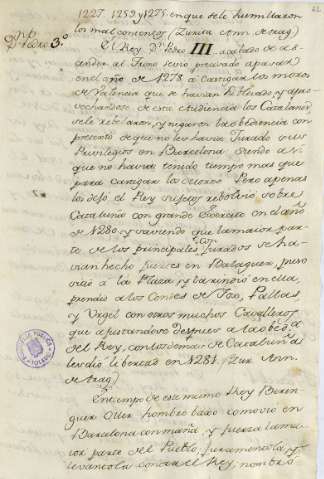 62
1227. 1259 y 1275. en que se le humillaron
los malcontentos (Zurita Ann. de Arag)
Dn Pedro 3.º
El Rey Dn. Pedro III. acabado de as-
cender al Trono se vio precisado a pasar
en el año de 1278 a Castigar los moros
de Valencia que se havian sublevado, y apro-
vechandose de esta ocasion los Catalanes
se le rebelaron, y negaron la obediencia con
pretexto de que no les havia Jurado sus
Privilegios en Barcelona, siendo asi
que no havia tenido tiempo mas que
para Castigar los Moros. Pero apenas
los dejó el Rey sujetos rebolvió sobre
Cataluña con grande Exercito en el año
de 1280. y sabiendo que la maior par-
te de los principales Conjurados se ha-
vian hecho fuertes en Balaguer, puso
sitio a la Plaza, y la rindió en ella,
prendió a los Condes de Fox, Pallas,
y Urgel con otros muchos Cavalleros
que ajustandose despues a la obed.ª
del Rey, con los demas de Cataluña
les dió libertad en 1281. (Zur. Ann.
de Arag)
En tiempo de ese mismo Rey Beren-
guer Oller hombre bajo comovio en
Barcelona con maña, y fuerza la ma-
ior parte del Pueblo, juramentola, y
levantola contra el Rey, nombró